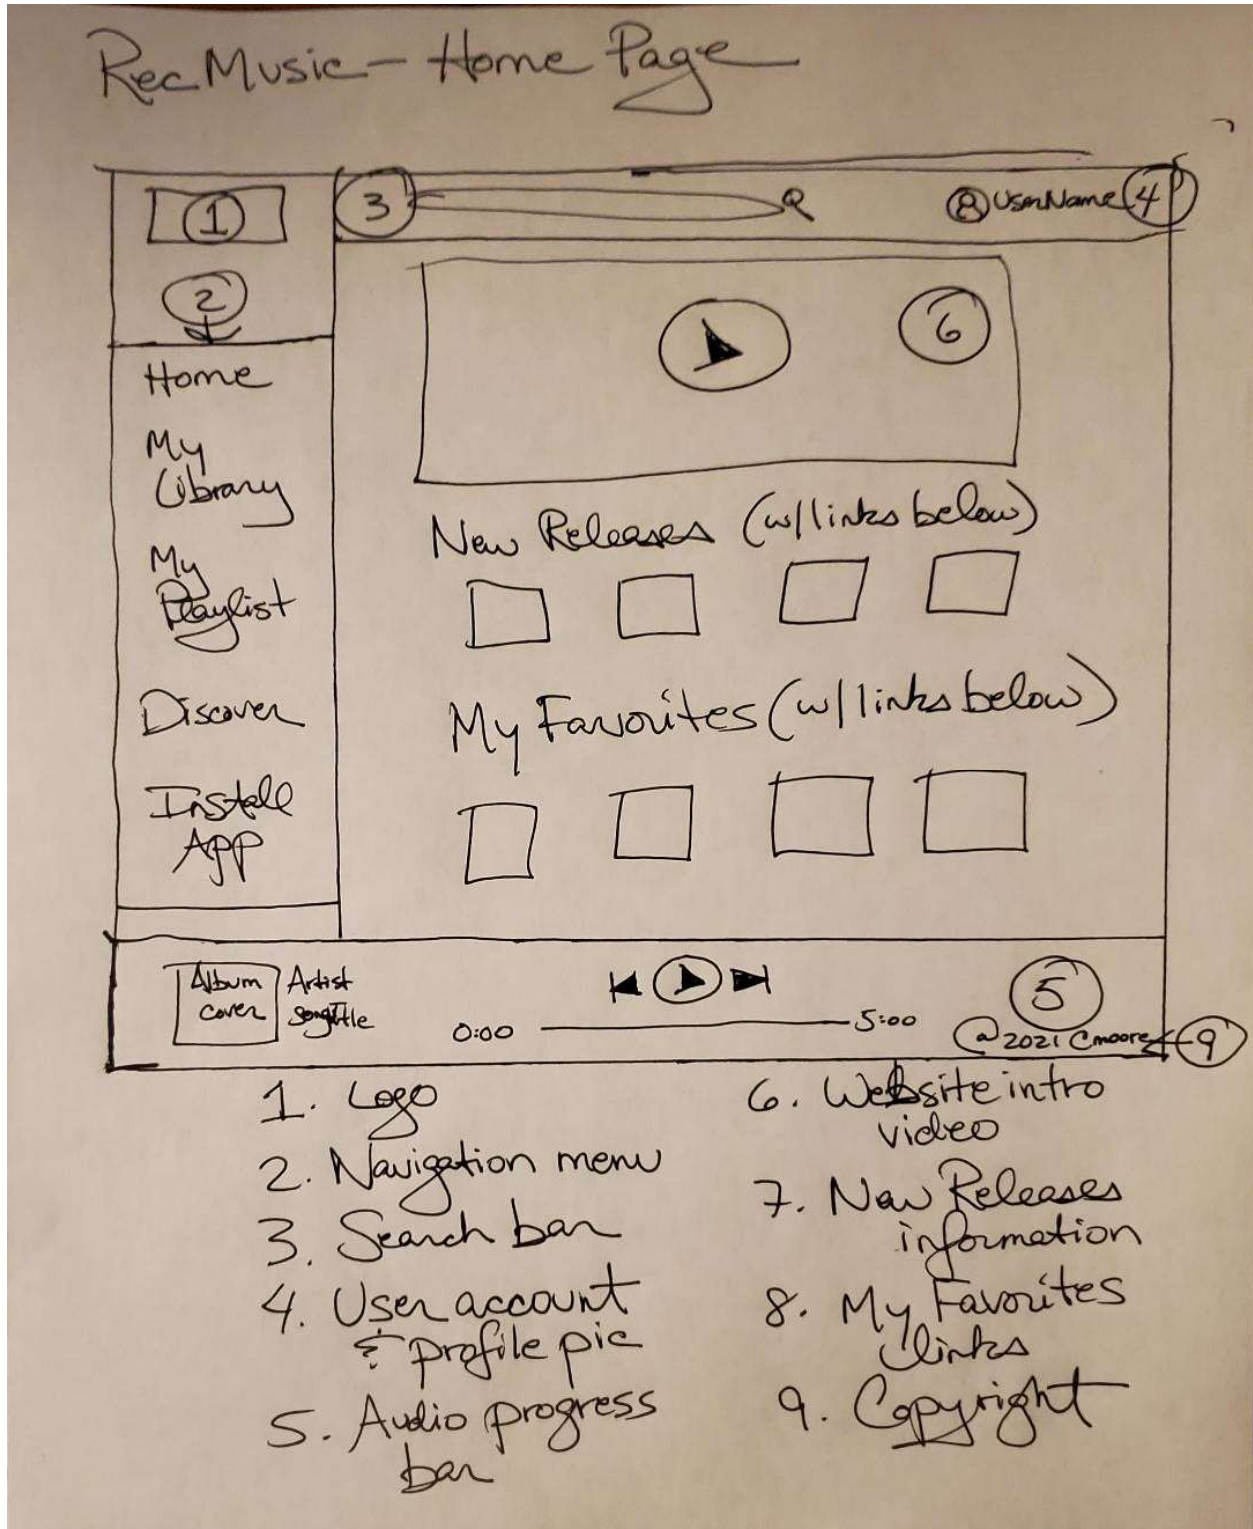 RecMusic - Home Page
1
3
UserName 4
2
6
Home
My
Library
My
Playlist
Discover
Install
App
New Releases (w/links below)
My Favorites (w/links below)
Album
cover
Artist
songTitle
0:00
5:00
5
@2021 Cmoore
9
1. Logo
2. Navigation menu
3. Search bar
4. User account
& profile pic
5. Audio progress
bar
6. Website intro
video
7. New Releases
information
8. My Favorites
links
9. Copyright